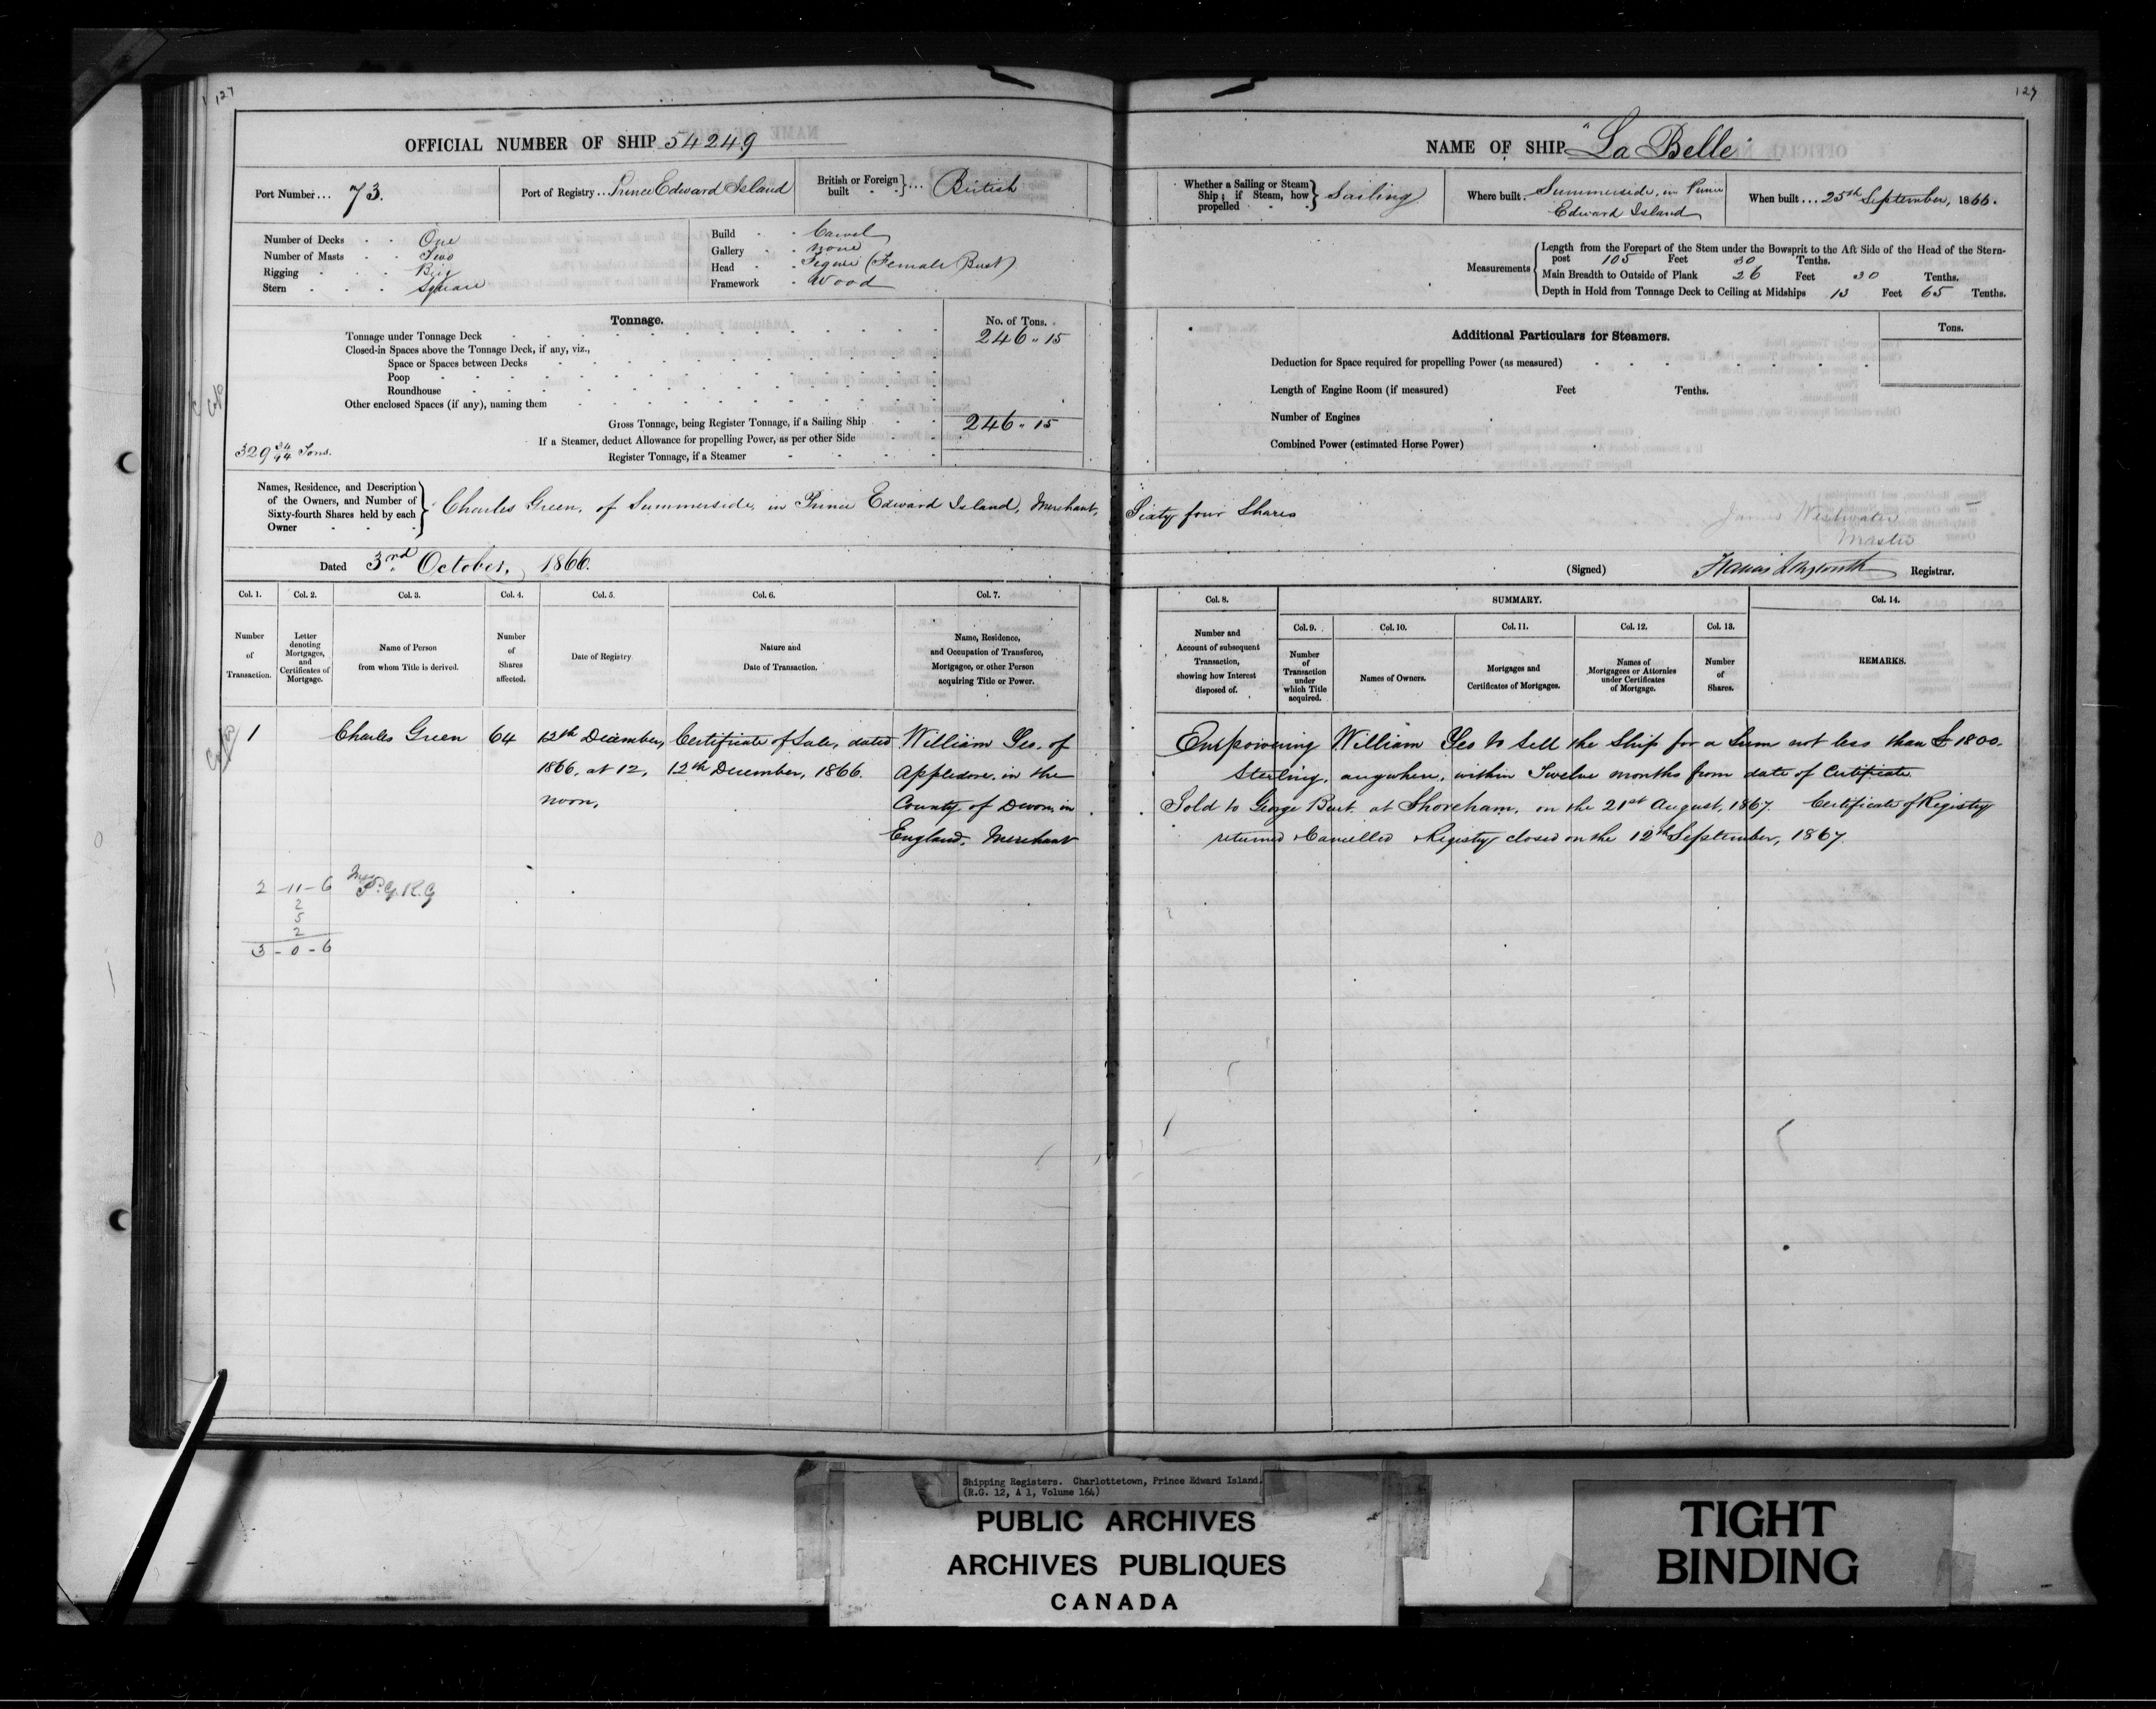 127
OFFICIAL NUMBER OF SHIP 54249
Port Number ... 73.
Port of Registry ... Prince Edward Island
British or Foreign built ... British
Number of Decks One
Number of Masts Two
Rigging Brig
Stern Square
Build Carvel
Gallery none
Head Figure (Female Bust)
Framework Wood
Tonnage.
No. of Tons.
Tonnage under Tonnage Deck 246 " 15
Closed-in Spaces above the Tonnage Deck, if any, viz.,
Space or Spaces between Decks
Poop
Roundhouse
Other enclosed Spaces (if any), naming them
Gross Tonnage, being Register Tonnage, if a Sailing Ship 246 " 15
If a Steamer, deduct Allowance for propelling Power, as per other Side
329 34/94 Tons.
Register Tonnage, if a Steamer
Names, Residence, and Description of the Owners, and Number of Sixty-fourth Shares held by each Owner
Charles Green, of Summerside, in Prince Edward Island, Merchant,
Dated 3rd October, 1866.
Col. 1. Col. 2. Col. 3. Col. 4. Col. 5. Col. 6. Col. 7.
Number of Transaction.
Letter denoting Mortgages, and Certificates of Mortgage.
Name of Person from whom Title is derived.
Number of Shares affected.
Date of Registry.
Nature and Date of Transaction.
Name, Residence, and Occupation of Transferee, Mortgagee, or other Person acquiring Title or Power.
1 Charles Green 64 12th December, Certificate of Sale, dated William Yeo, of
1866, at 12, 12th December, 1866. Appledore, in the
noon, County of Devon, in
England, Merchant
2-11-6 P.G.R.G
2
5
2
3-0-6
127
NAME OF SHIP "La Belle"
Whether a Sailing or Steam Ship; if Steam, how propelled Sailing
Where built Summerside, in Prince
Edward Island
When built ... 25th September, 1866.
Measurements
Length from the Forepart of the Stem under the Bowsprit to the Aft Side of the Head of the Stern-
post 105 Feet 30 Tenths.
Main Breadth to Outside of Plank 26 Feet 30 Tenths.
Depth in Hold from Tonnage Deck to Ceiling at Midships 13 Feet 65 Tenths.
Additional Particulars for Steamers.
Tons.
Deduction for Space required for propelling Power (as measured)
Length of Engine Room (if measured) Feet Tenths.
Number of Engines
Combined Power (estimated Horse Power)
Sixty four Shares
James Westwater
Master
(Signed) Registrar.
Col. 8. SUMMARY. Col. 14.
Col. 9. Col. 10. Col. 11. Col. 12. Col. 13.
Number and Account of subsequent Transaction, showing how Interest disposed of.
Number of Transaction under which Title acquired.
Names of Owners.
Mortgages and Certificates of Mortgages.
Names of Mortgagees or Attornies under Certificates of Mortgage.
Number of Shares.
REMARKS.
Empowering William Yeo to sell the Ship for a Sum not less than £1800.
Sterling, anywhere, within Twelve months from date of Certificate.
Sold to George Burt at Shoreham, on the 21st August, 1867. Certificate of Registry
returned & Cancelled & Registry closed on the 12th September, 1867.
Shipping Registers. Charlottetown, Prince Edward Island.
(R.G. 12, A 1, Volume 164)
PUBLIC ARCHIVES
ARCHIVES PUBLIQUES
CANADA
TIGHT
BINDING